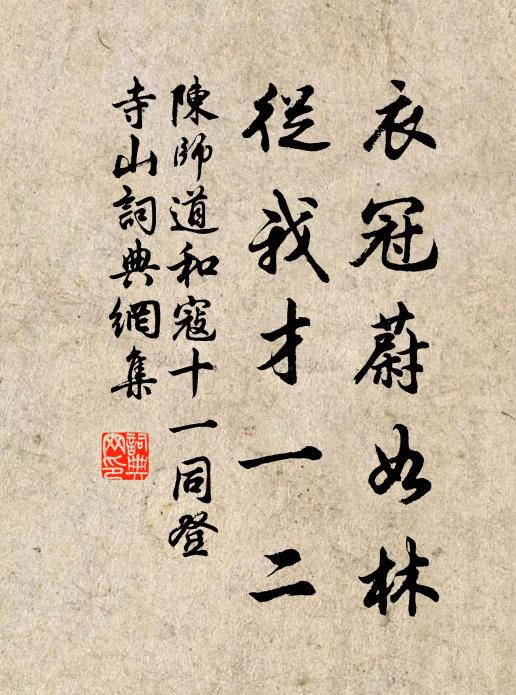 衣冠蔚如林
從我才一二
陳師道和寇十一同登
寺山詞典網集
詞典網印